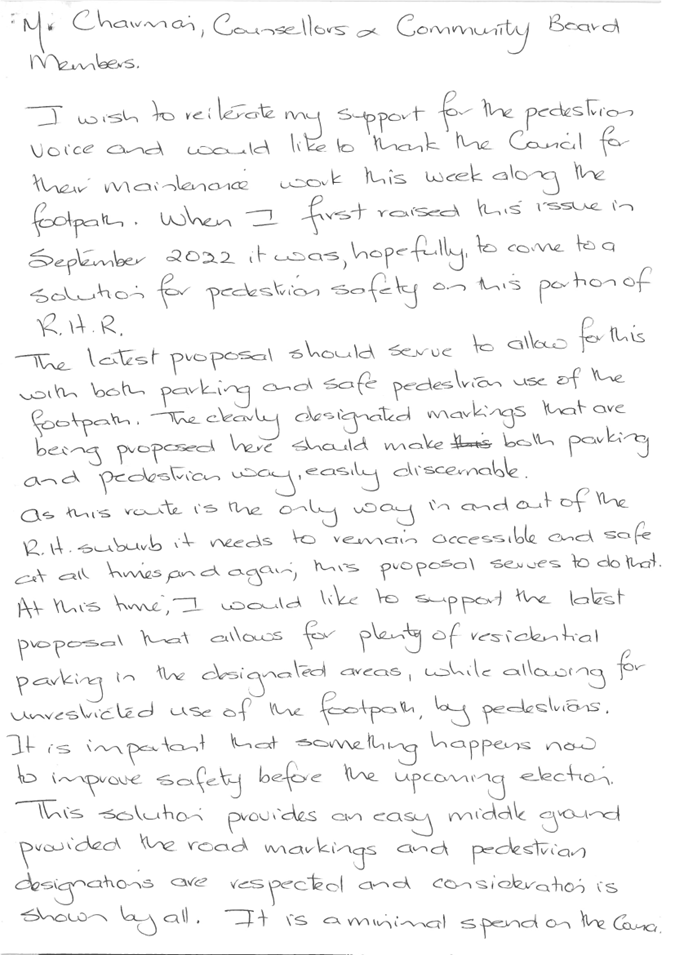 Mr Chairman, Counsellors & Community Board
Members.
I wish to reiterate my support for the pedestrian
voice and would like to thank the Council for
their maintenance work this week along the
footpath. When I first raised this issue in
September 2022 it was, hopefully, to come to a
solution for pedestrian safety on this portion of
R.H.R.
The latest proposal should serve to allow for this
with both parking and safe pedestrian use of the
footpath. The clearly designated markings that are
being proposed here should make this both parking
and pedestrian way, easily discernable.
As this route is the only way in and out of the
R.H. suburb it needs to remain accessible and safe
at all times, and again, this proposal serves to do that.
At this time, I would like to support the latest
proposal that allows for plenty of residential
parking in the designated areas, while allowing for
unrestricted use of the footpath, by pedestrians.
It is important that something happens now
to improve safety before the upcoming election.
This solution provides an easy middle ground
provided the road markings and pedestrian
designations are respected and consideration is
shown by all. It is a minimal spend on the Counci